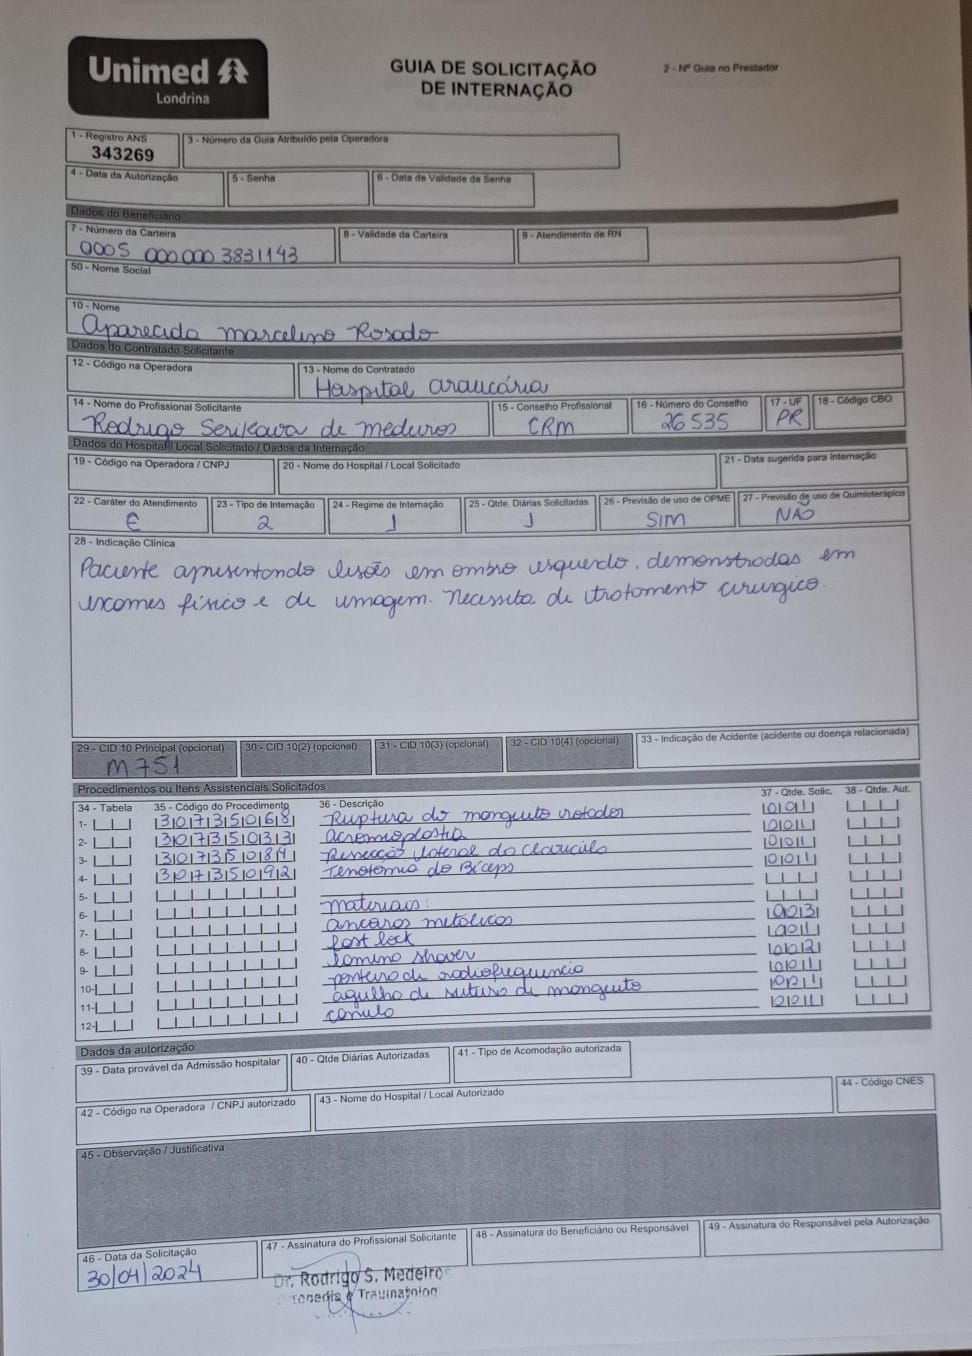 Unimed
Londrina
GUIA DE SOLICITAÇÃO
DE INTERNAÇÃO
2 - Nº Guia no Prestador
1 - Registro ANS
343269
3 - Número da Guia Atribuído pela Operadora
4 - Data da Autorização
5 - Senha
6 - Data de Validade da Senha
Dados do Beneficiário
7 - Número da Carteira
0005 000000 3831143
8 - Validade da Carteira
9 - Atendimento de RN
50 - Nome Social
10 - Nome
Aparecida Marcelino Rosado
Dados do Contratado Solicitante
12 - Código na Operadora
13 - Nome do Contratado
Hospital Araucária
14 - Nome do Profissional Solicitante
Rodrigo Serikava de Medeiros
15 - Conselho Profissional
CRM
16 - Número do Conselho
26535
17 - UF
PR
18 - Código CBO
Dados do Hospital / Local Solicitado / Dados da Internação
19 - Código na Operadora / CNPJ
20 - Nome do Hospital / Local Solicitado
21 - Data sugerida para Internação
22 - Caráter do Atendimento
E
23 - Tipo de Internação
2
24 - Regime de Internação
1
25 - Qtde. Diárias Solicitadas
1
26 - Previsão de uso de OPME
SIM
27 - Previsão de uso de Quimioterápico
NÃO
28 - Indicação Clínica
Paciente apresentando lesões em ombro esquerdo, demonstradas em
exames físico e de imagem. Necessita de tratamento cirurgico.
29 - CID 10 Principal (opcional)
M751
30 - CID 10(2) (opcional)
31 - CID 10(3) (opcional)
32 - CID 10(4) (opcional)
33 - Indicação de Acidente (acidente ou doença relacionada)
Procedimentos ou Itens Assistenciais Solicitados
34 - Tabela 35 - Código do Procedimento 36 - Descrição 37 - Qtde. Solic. 38 - Qtde. Aut.
1- 30735068 Ruptura do manguito rotador 001
2- 30735033 acromioplastia 001
3- 30735084 Ressecção lateral da clavícula 001
4- 30735092 Tenotomia do Bíceps 001
5-
6- materiais:
7- ancoras metálicas 003
8- fast lock 001
9- lamina shaver 002
10- ponteira de radiofrequencia 001
11- agulha de sutura de manguito 001
12- canula 001
Dados da autorização
39 - Data provável da Admissão hospitalar
40 - Qtde Diárias Autorizadas
41 - Tipo de Acomodação autorizada
42 - Código na Operadora / CNPJ autorizado
43 - Nome do Hospital / Local Autorizado
44 - Código CNES
45 - Observação / Justificativa
46 - Data da Solicitação
30/04/2024
47 - Assinatura do Profissional Solicitante
Dr. Rodrigo S. Medeiros
48 - Assinatura do Beneficiário ou Responsável
49 - Assinatura do Responsável pela Autorização